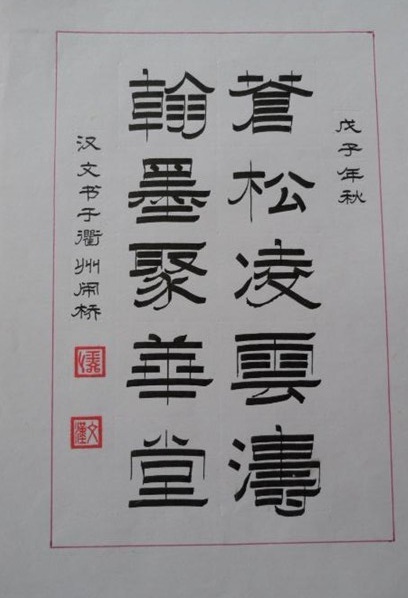 戊子年秋
蒼松凌雲濤
翰墨聚華堂
汉文书于衢州闹桥